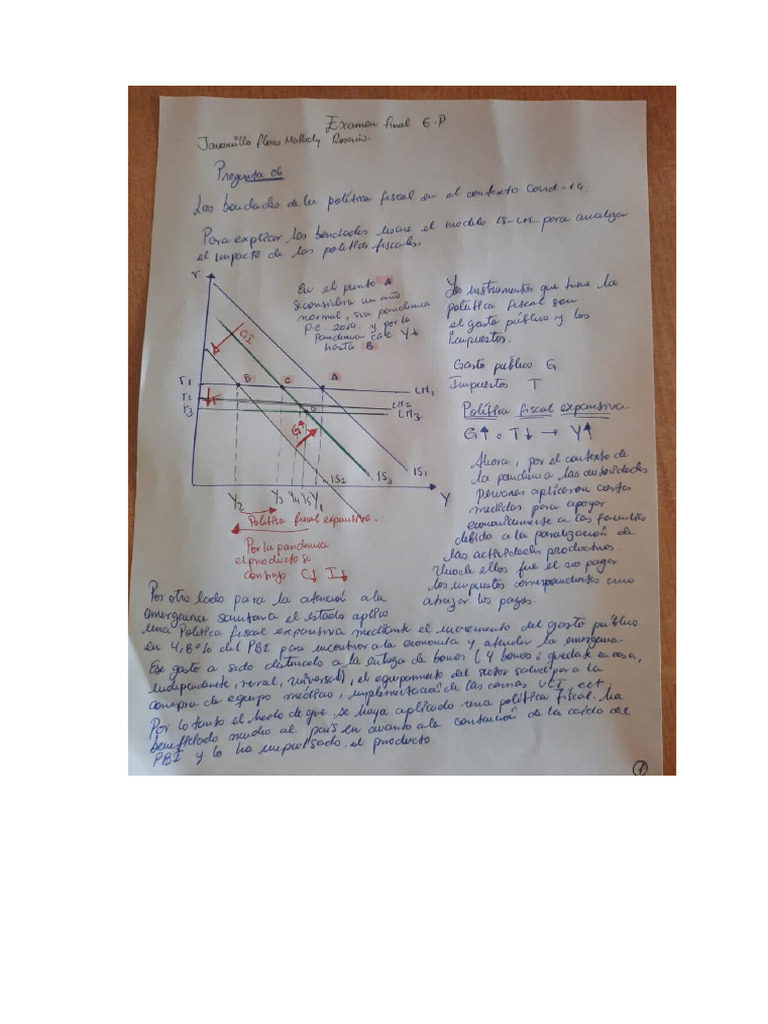 Examen final E.P
Jaramillo flores Rosario.
Pregunta 06
Las bondades de la política fiscal en el contexto Covid-19.
Para explicar las bondades usare el modelo IS-LM para analizar
el impacto de las politicas fiscales.
r
En el punto A
se considera un año
normal, sin pandemia
2019. y por la
Pandemia cae Y↓
hasta B
CI
r1
r2
r3
B
C
A
D
G↑
LM1
LM2
LM3
IS2
IS3
IS1
Y2
Y3
Y4
Y5
Y1
Y
Política fiscal expansiva.
Por la pandemia
el producto se
contrajo C↓ I↓
Los instrumentos que tiene la
política fiscal son
el gasto público y los
impuestos.
Gasto público G
Impuestos T
Política fiscal expansiva
G↑ o T↓ → Y↑
Ahora, por el contexto de
la pandemia las autoridades
peruanas aplicaron ciertas
medidas para apoyar
economicamente a las familias
debido a la paralización de
las actividades productivas.
Una de ellas fue el no pagar
los impuestos correspondientes como
atrazar los pagos.
Por otro lado para la atención a la
emergencia sanitaria el estado aplico
una Politica fiscal expansiva mediante el incremento del gasto público
en 4,8% del PBI para incentivar a la economía y atender la emergencia.
Ese gasto a sido destinado a la entrega de bonos (4 bonos: quedate en casa,
independiente, rural, universal), el equipamento del sector salud para la
compra de equipo médico, implementación de las camas UCI ect.
Por lo tanto el hecho de que se haya aplicado una política fiscal. ha
beneficiado mucho al país en cuanto a la contención de la caída del
PBI y lo ha impulsado el producto
1